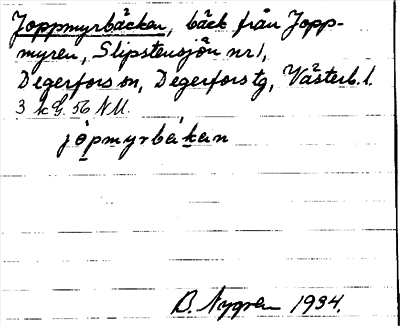 Joppmyrbäcken, bäck från Jopp-
myren, Slipstensjön nr 1,
Degerfors sn, Degerfors tg, Västerb. l.
3 kG. 56 NU.
jòpmyrbäkɛn
B. Nygren 1934.